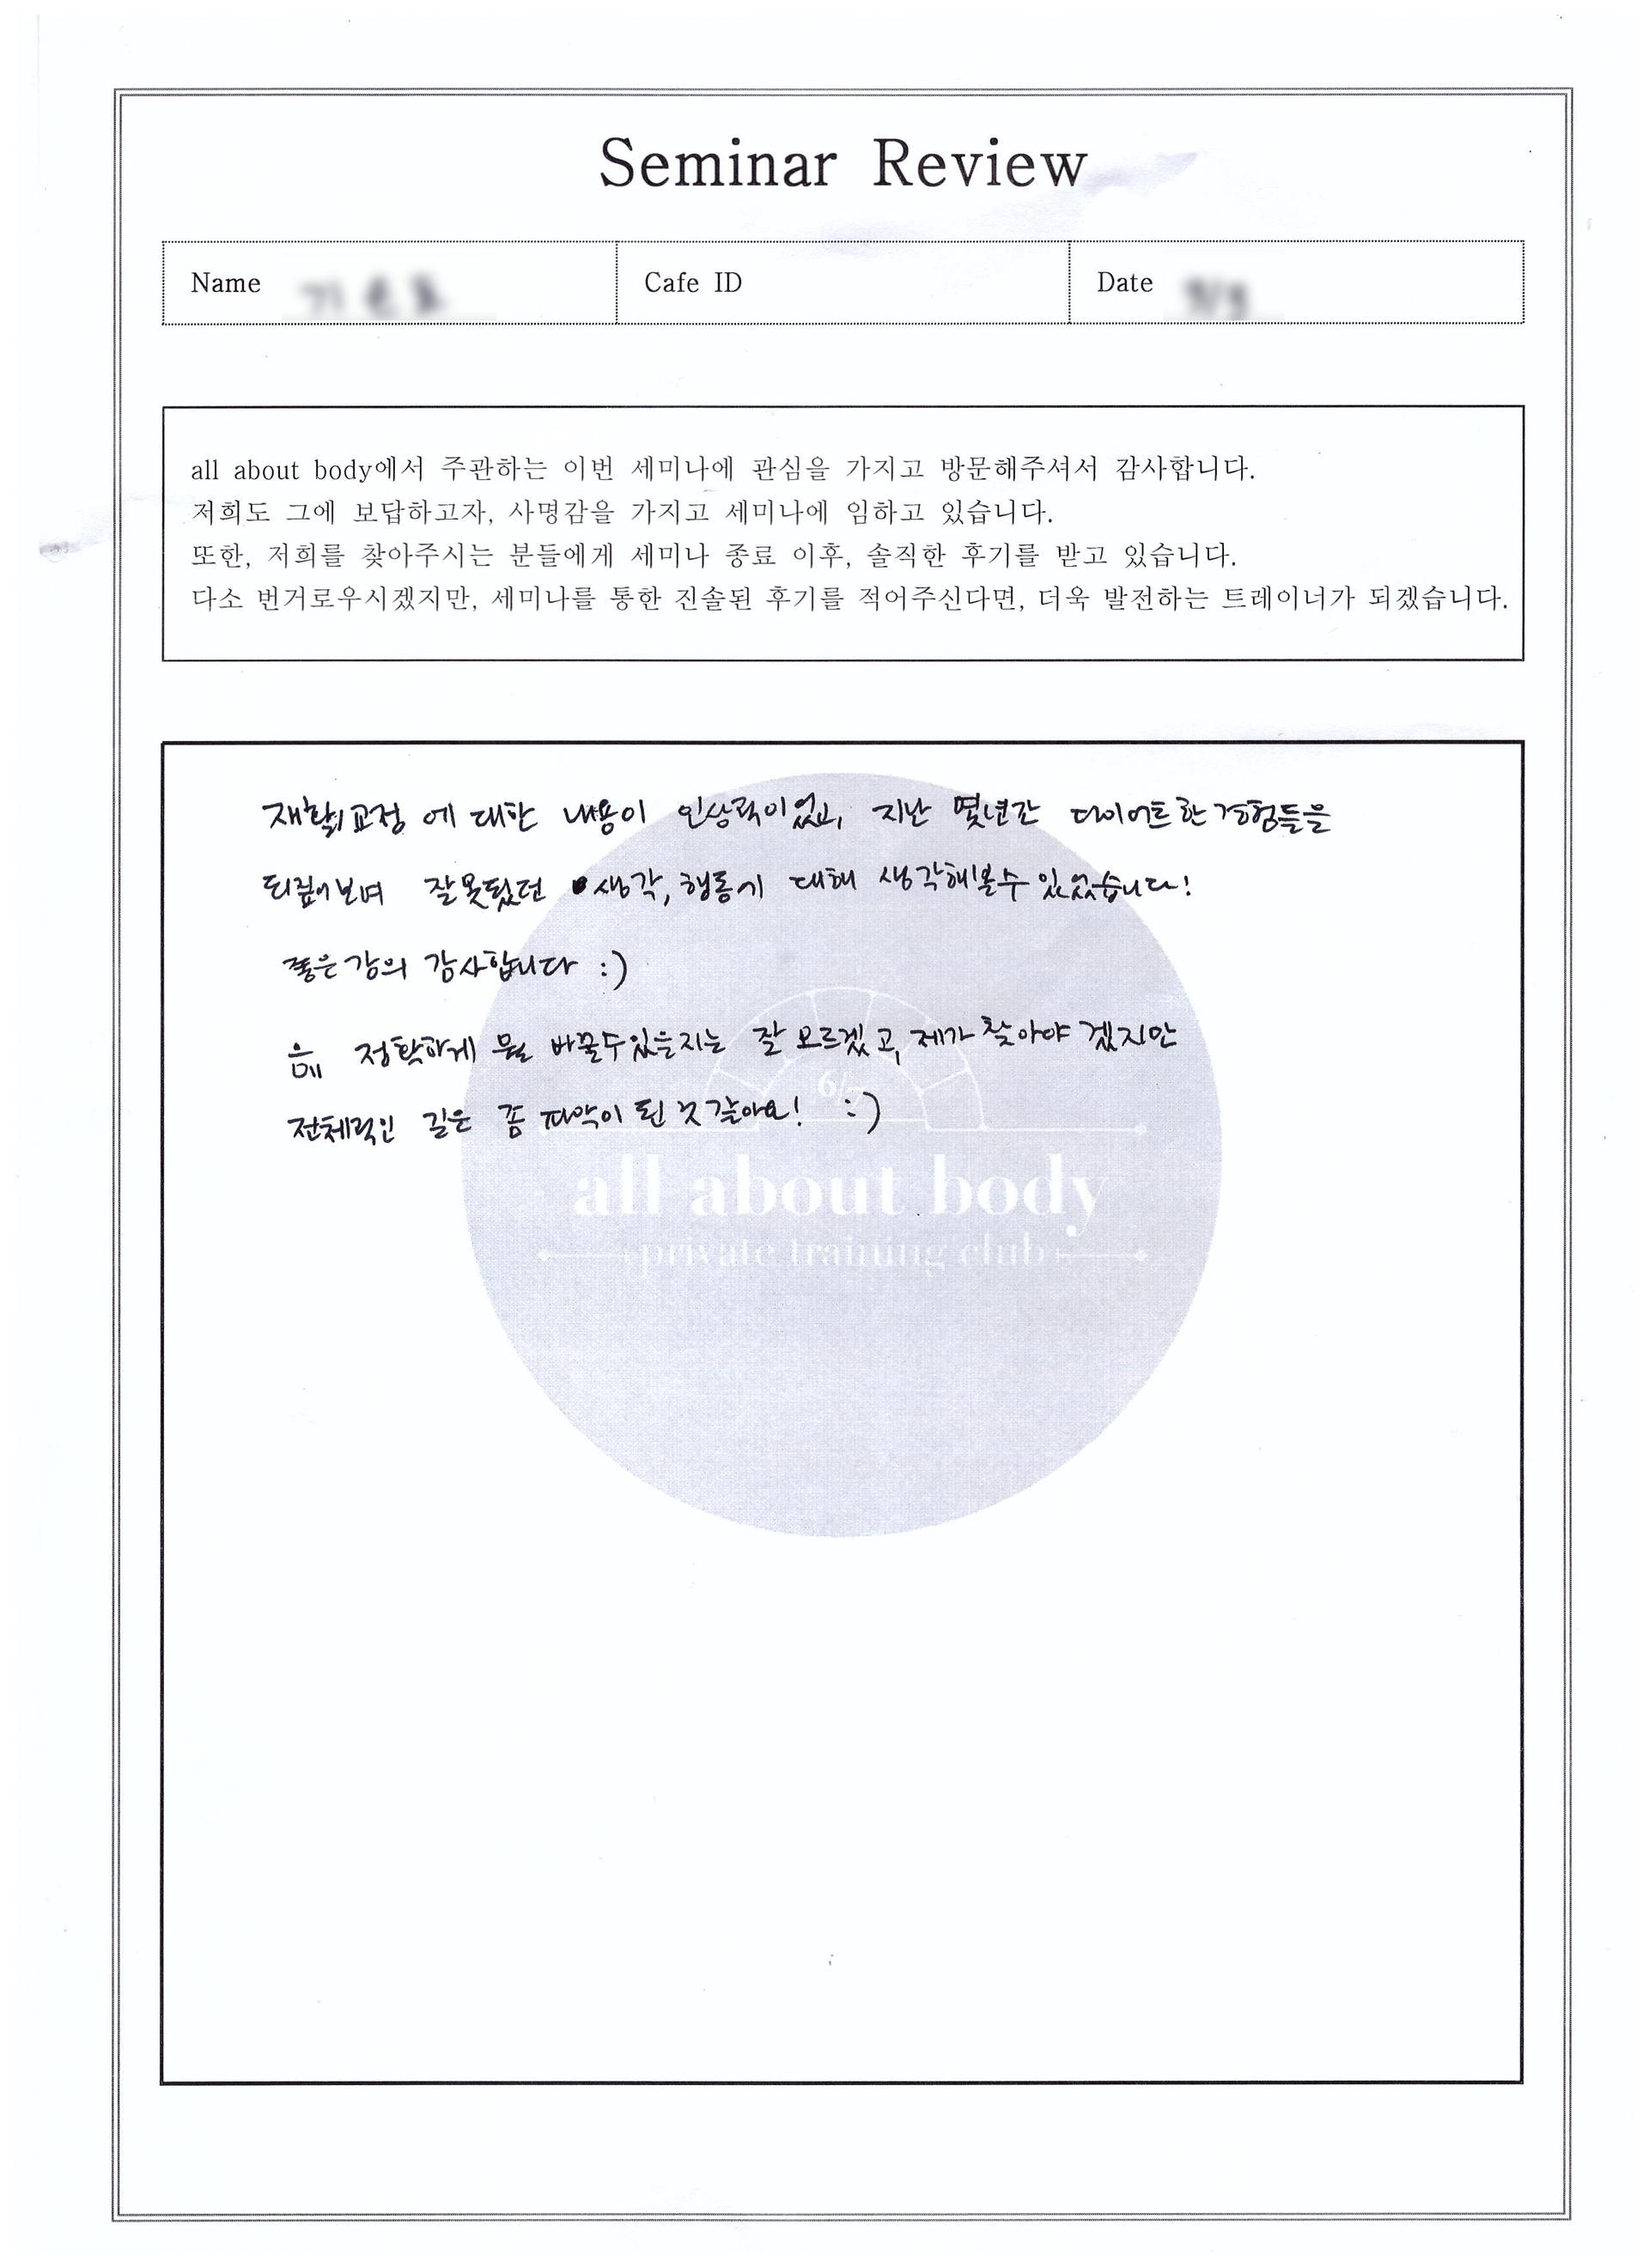 Seminar Review
Name Cafe ID Date
all about body에서 주관하는 이번 세미나에 관심을 가지고 방문해주셔서 감사합니다.
저희도 그에 보답하고자, 사명감을 가지고 세미나에 임하고 있습니다.
또한, 저희를 찾아주시는 분들에게 세미나 종료 이후, 솔직한 후기를 받고 있습니다.
다소 번거로우시겠지만, 세미나를 통한 진솔된 후기를 적어주신다면, 더욱 발전하는 트레이너가 되겠습니다.
재활/교정 에 대한 내용이 인상적이었고, 지난 몇년간 다이어트한 경험들을
되짚어보며 잘못됐던 생각, 행동에 대해 생각해볼수 있었습니다!
좋은 강의 감사합니다 :)
음 정확하게 뭘 바꿀수있을지는 잘 모르겠고, 제가 찾아야 겠지만
전체적인 길은 좀 파악이 된 것 같아요! :)
all about body
private training club